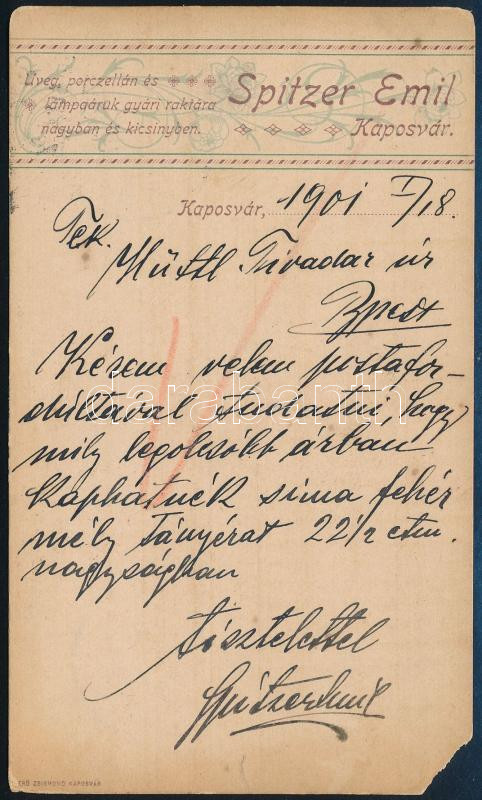 Üveg, porczellán és
lámpaáruk gyári raktára
nagyban és kicsinyben.
Spitzer Emil
Kaposvár.
Kaposvár, 1901 I/18.
Tek.
Hüttl Tivadar úr
Bpest
Kérem velem postafor-
dultával tudatni, hogy
mily legolcsóbb árban
kaphatnék sima fehér
mély tányérat 22 1/2 ctm.
nagyságban
tisztelettel
Spitzer Emil
darabanth
ZSIGMOND KAPOSVÁR